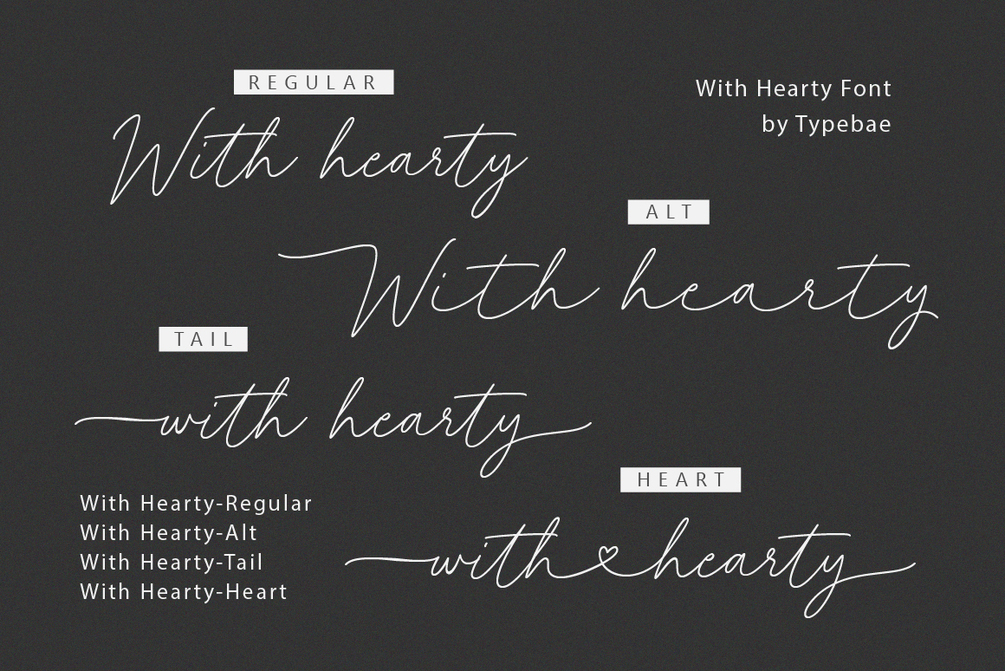 REGULAR
With hearty
With Hearty Font
by Typebae
ALT
With hearty
TAIL
with hearty
HEART
with♡hearty
With Hearty-Regular
With Hearty-Alt
With Hearty-Tail
With Hearty-Heart